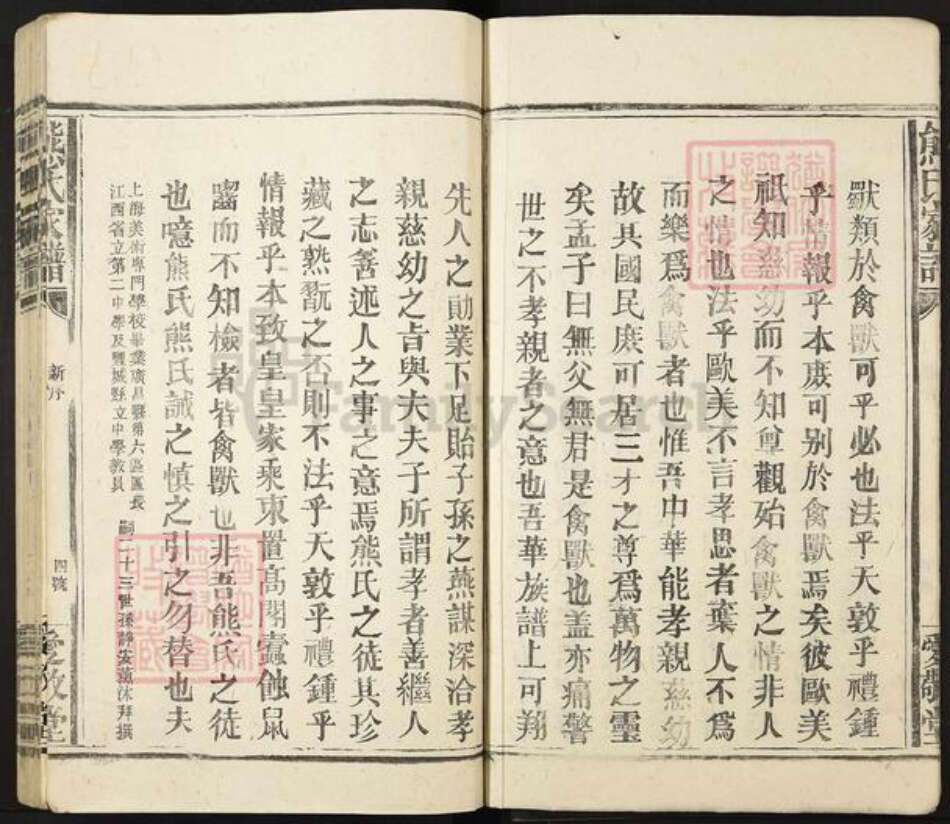 熊氏家譜
愛敬堂
獸類於禽獸可乎必也法乎天敦乎禮鍾
乎情報乎本庶可别於禽獸焉矣彼歐美
祇知慈幼而不知尊觀殆禽獸之情非人
之情也法乎歐美不言孝思者棄人不爲
而樂爲禽獸者也惟吾中華能孝親慈幼
故其國民庶可居三才之尊爲萬物之靈
矣孟子曰無父無君是禽獸也盖亦痛警
世之不孝親者之意也吾華族譜上可翔
先人之勛業下足貽子孫之燕謀深洽孝
親慈幼之旨與夫夫子所謂孝者善繼人
之志善述人之事之意焉熊氏之徒其珍
藏之熟翫之否則不法乎天敦乎禮鍾乎
情報乎本致皇皇家乘束置高閣蠹蝕鼠
齧而不知檢者皆禽獸也非吾熊氏之徒
也噫熊氏熊氏誠之慎之引之勿替也夫
上海美術專門學校畢業廣昌縣第六區區長
江西省立第二中學及豐城縣立中學教員
嗣二十三世孫靜安薰沐拜撰
熊氏家譜
新序
四號
愛敬堂
FamilySearch